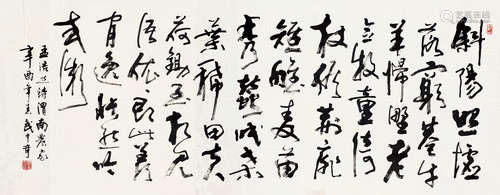 斜陽照墟
落窮巷牛
羊歸野老
念牧童倚
杖候荊扉
雉雊麥苗
秀蠶眠桑
葉稀田夫
荷鋤至相見
語依依即此羨
閒逸悵然吟
式微
孟浩然詩渭南農家
辛酉年武中奇